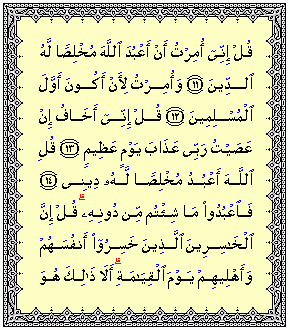 قُلْ إِنِّىٓ أُمِرْتُ أَنْ أَعْبُدَ ٱللَّهَ مُخْلِصًا لَّهُ
ٱلدِّينَ ۝١١ وَأُمِرْتُ لِأَنْ أَكُونَ أَوَّلَ
ٱلْمُسْلِمِينَ ۝١٢ قُلْ إِنِّىٓ أَخَافُ إِنْ
عَصَيْتُ رَبِّى عَذَابَ يَوْمٍ عَظِيمٍ ۝١٣ قُلِ
ٱللَّهَ أَعْبُدُ مُخْلِصًا لَّهُۥ دِينِى ۝١٤
فَٱعْبُدُوا۟ مَا شِئْتُم مِّن دُونِهِۦ ۗ قُلْ إِنَّ
ٱلْخَٰسِرِينَ ٱلَّذِينَ خَسِرُوٓا۟ أَنفُسَهُمْ
وَأَهْلِيهِمْ يَوْمَ ٱلْقِيَٰمَةِ ۗ أَلَا ذَٰلِكَ هُوَ